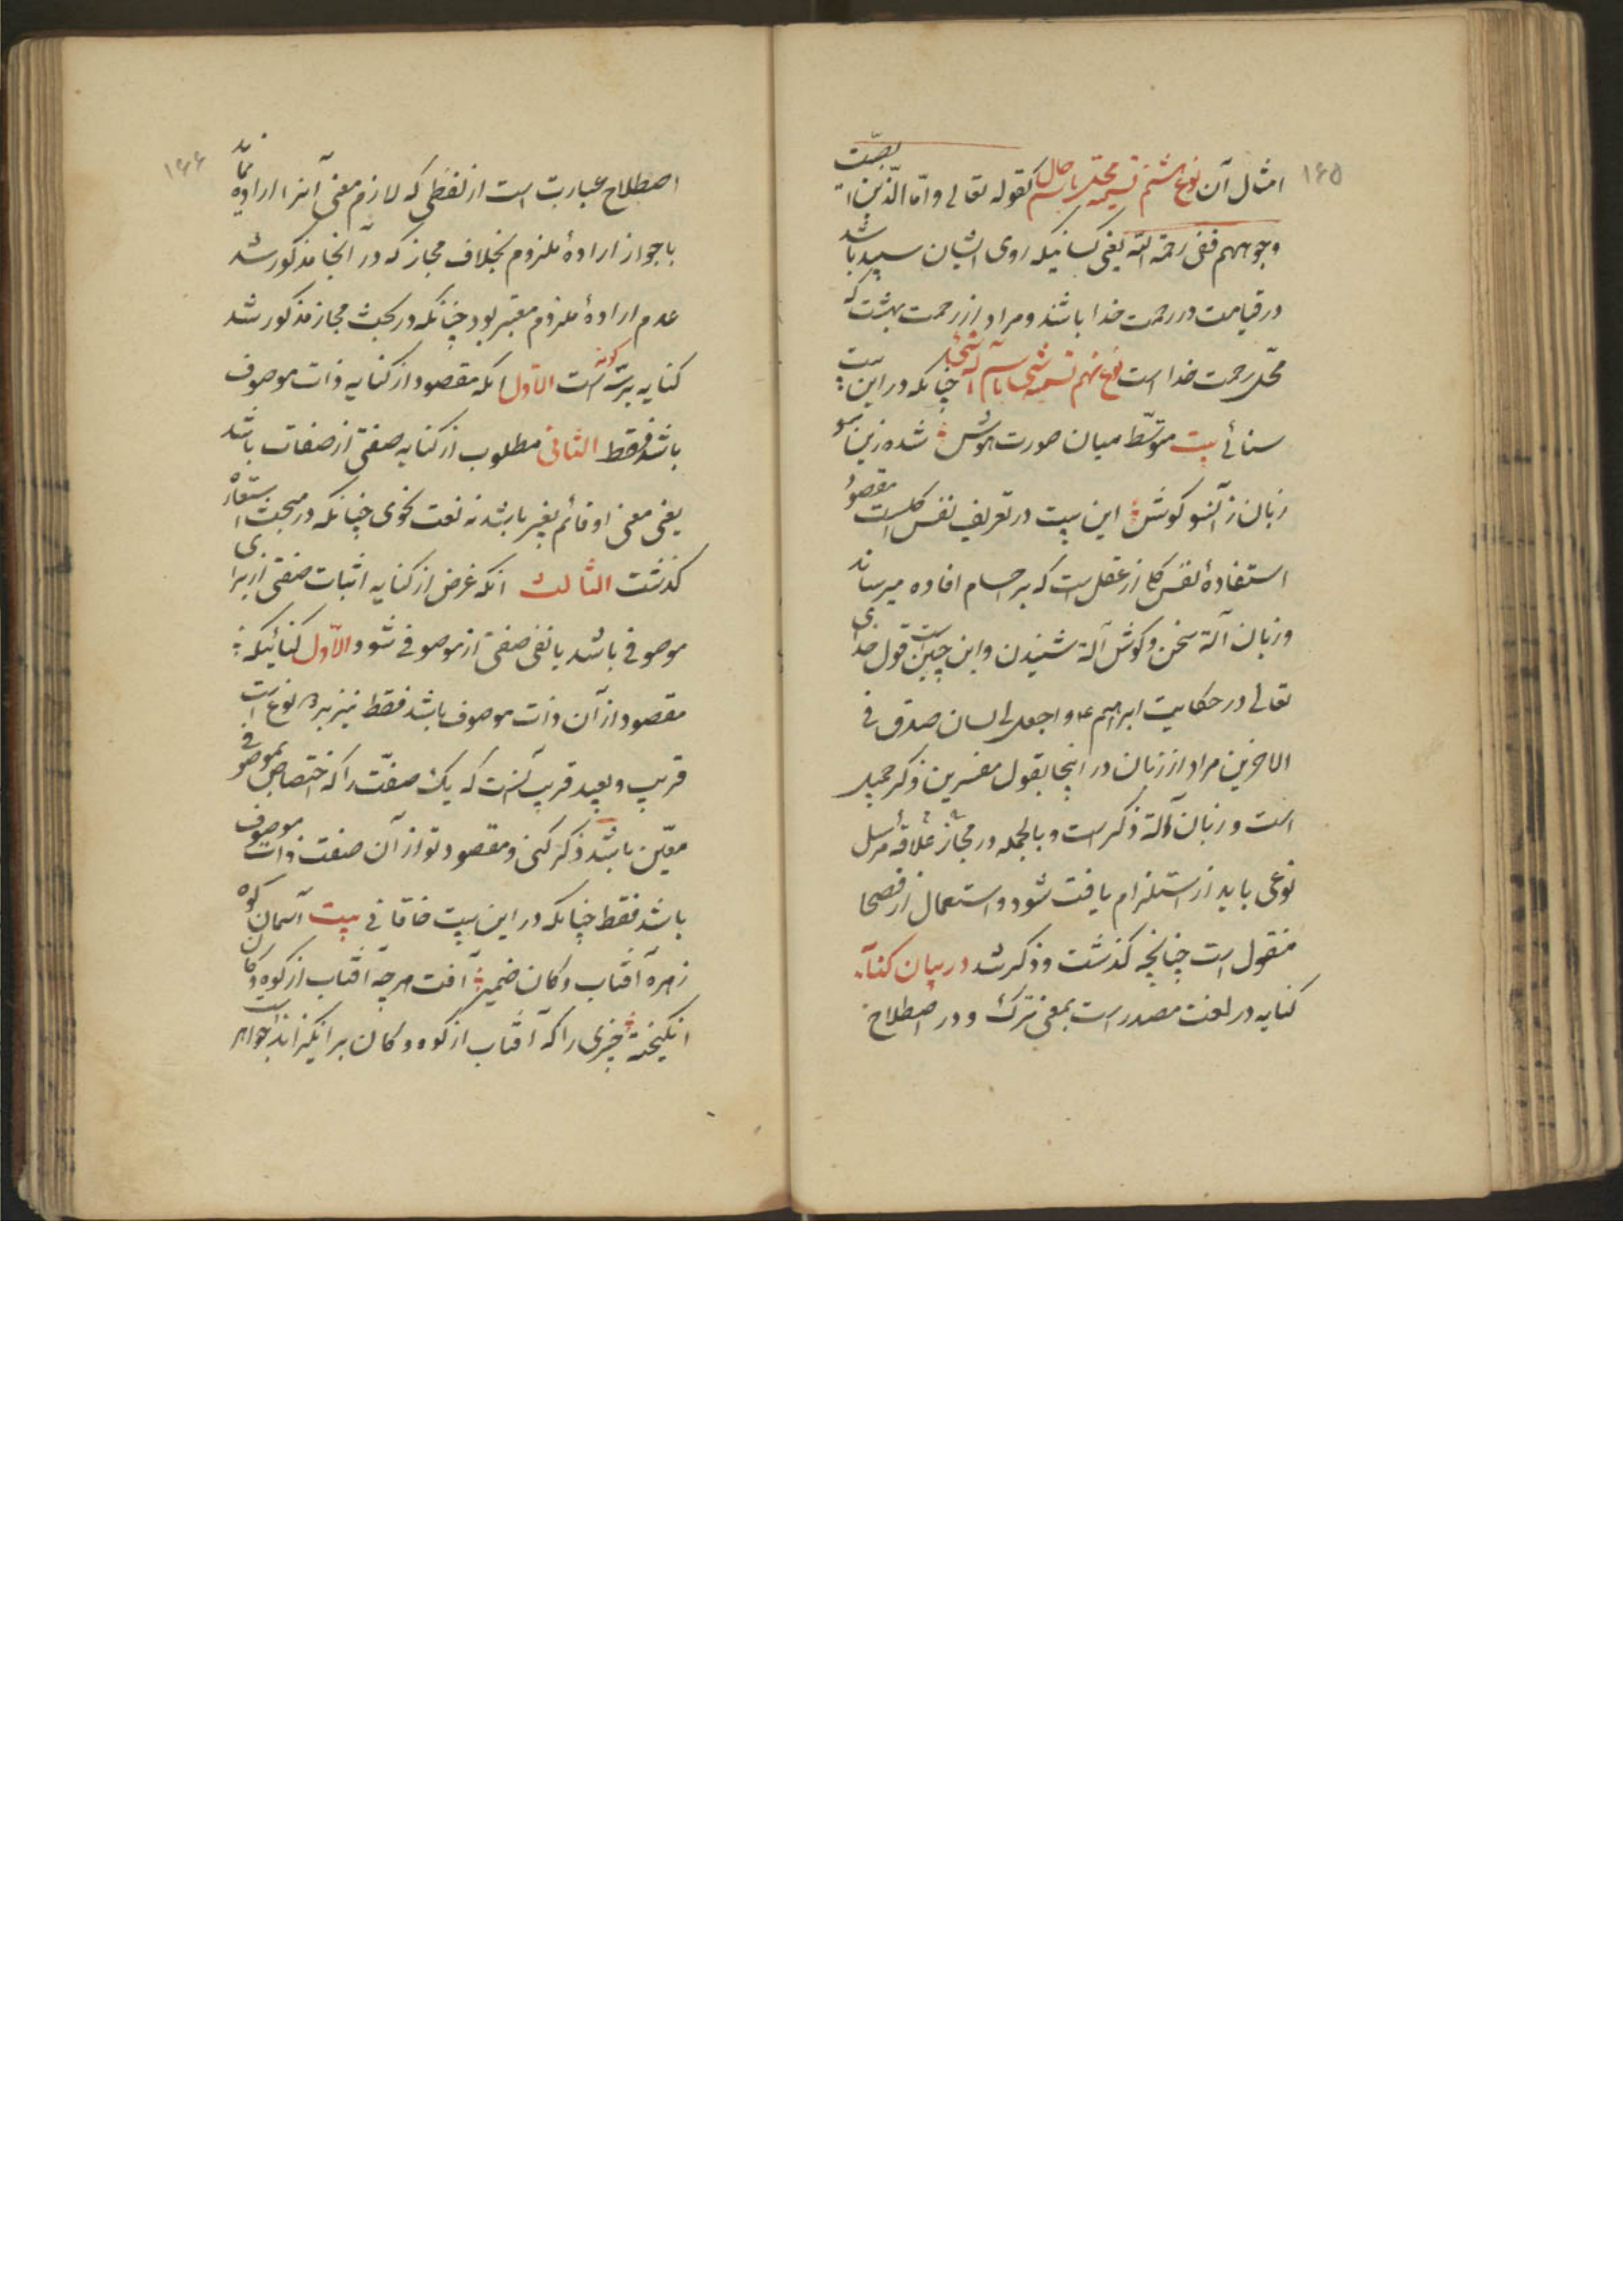 ۱۶۵
امثال آن نوع هشتم تسمیه محل باسم حال کقوله تعالی و اما الذین ابیضت
وجوههم ففی رحمة الله یعنی کسانیکه روی ایشان سپید باشد
در قیامت در رحمت خدا باشند و مراد از رحمت بهشت که
محل رحمت خدا است نوع نهم تسمیه شی باسم آلة شی چنانکه در این بیت
سنائی بیت متوسط میان صورت و هوش شده زینسو
زبان زآنسو کوش این بیت در تعریف نفس کلست مقصود
استفادهٔ نفس کل از عقلست که بر اجسام افاده میرساند
و زبان آلة سخن و کوش آلة شنیدن و این چنین است قول خدای
تعالی در حکایت ابراهیم ع و اجعل لی لسان صدق فی
الاخرین مراد از زبان در اینجا بقول مفسرین ذکر جمیل
است و زبان آلة ذکر است و بالجمله در مجاز علاقهٔ مرسل
نوعی باید از استلزام یافت شود و استعمال از فصحا
منقول است چنانچه کذشت و ذکر شد در بیان کنایه
کنایه در لغت مصدر است بمعنی ترک و در اصطلاح
۱۶۶
اصطلاح عبارت است از لفظی که لازم معنی آنرا اراده نمایند
با جواز ارادهٔ ملزوم بخلاف مجاز که در آنجا مذکور شد
عدم ارادهٔ ملزوم معتبر بود چنانکه در بحث مجاز مذکور شد
کنایه بر سه کونه است الاول آنکه مقصود از کنایه ذات موصوف
باشد فقط الثانی مطلوب از کنایه صفتی از صفات باشد
یعنی معنی او قائم بغیر باشد نه نعت نحوی چنانکه در مبحث استعاره
کذشت الثالث آنکه غرض از کنایه اثبات صفتی از برای
موصوفی باشد یا نفی صفتی از موصوفی شود الاول کنائیکه
مقصود از آن ذات موصوف باشد فقط نیز بر دو نوع است
قریب و بعید قریب آنست که یک صفت را که اختصاص بموصوفی
معین باشد ذکر کنی و مقصود تو از آن صفت ذات موصوف
باشد فقط چنانکه در این بیت خاقانی بیت آسمان کوه
زهره آفتاب و کان ضمیر آفت هرچه آفتاب از کوه و کان
انکیخته چیزی را که آفتاب از کوه و کان برانکیزاند جواهر است